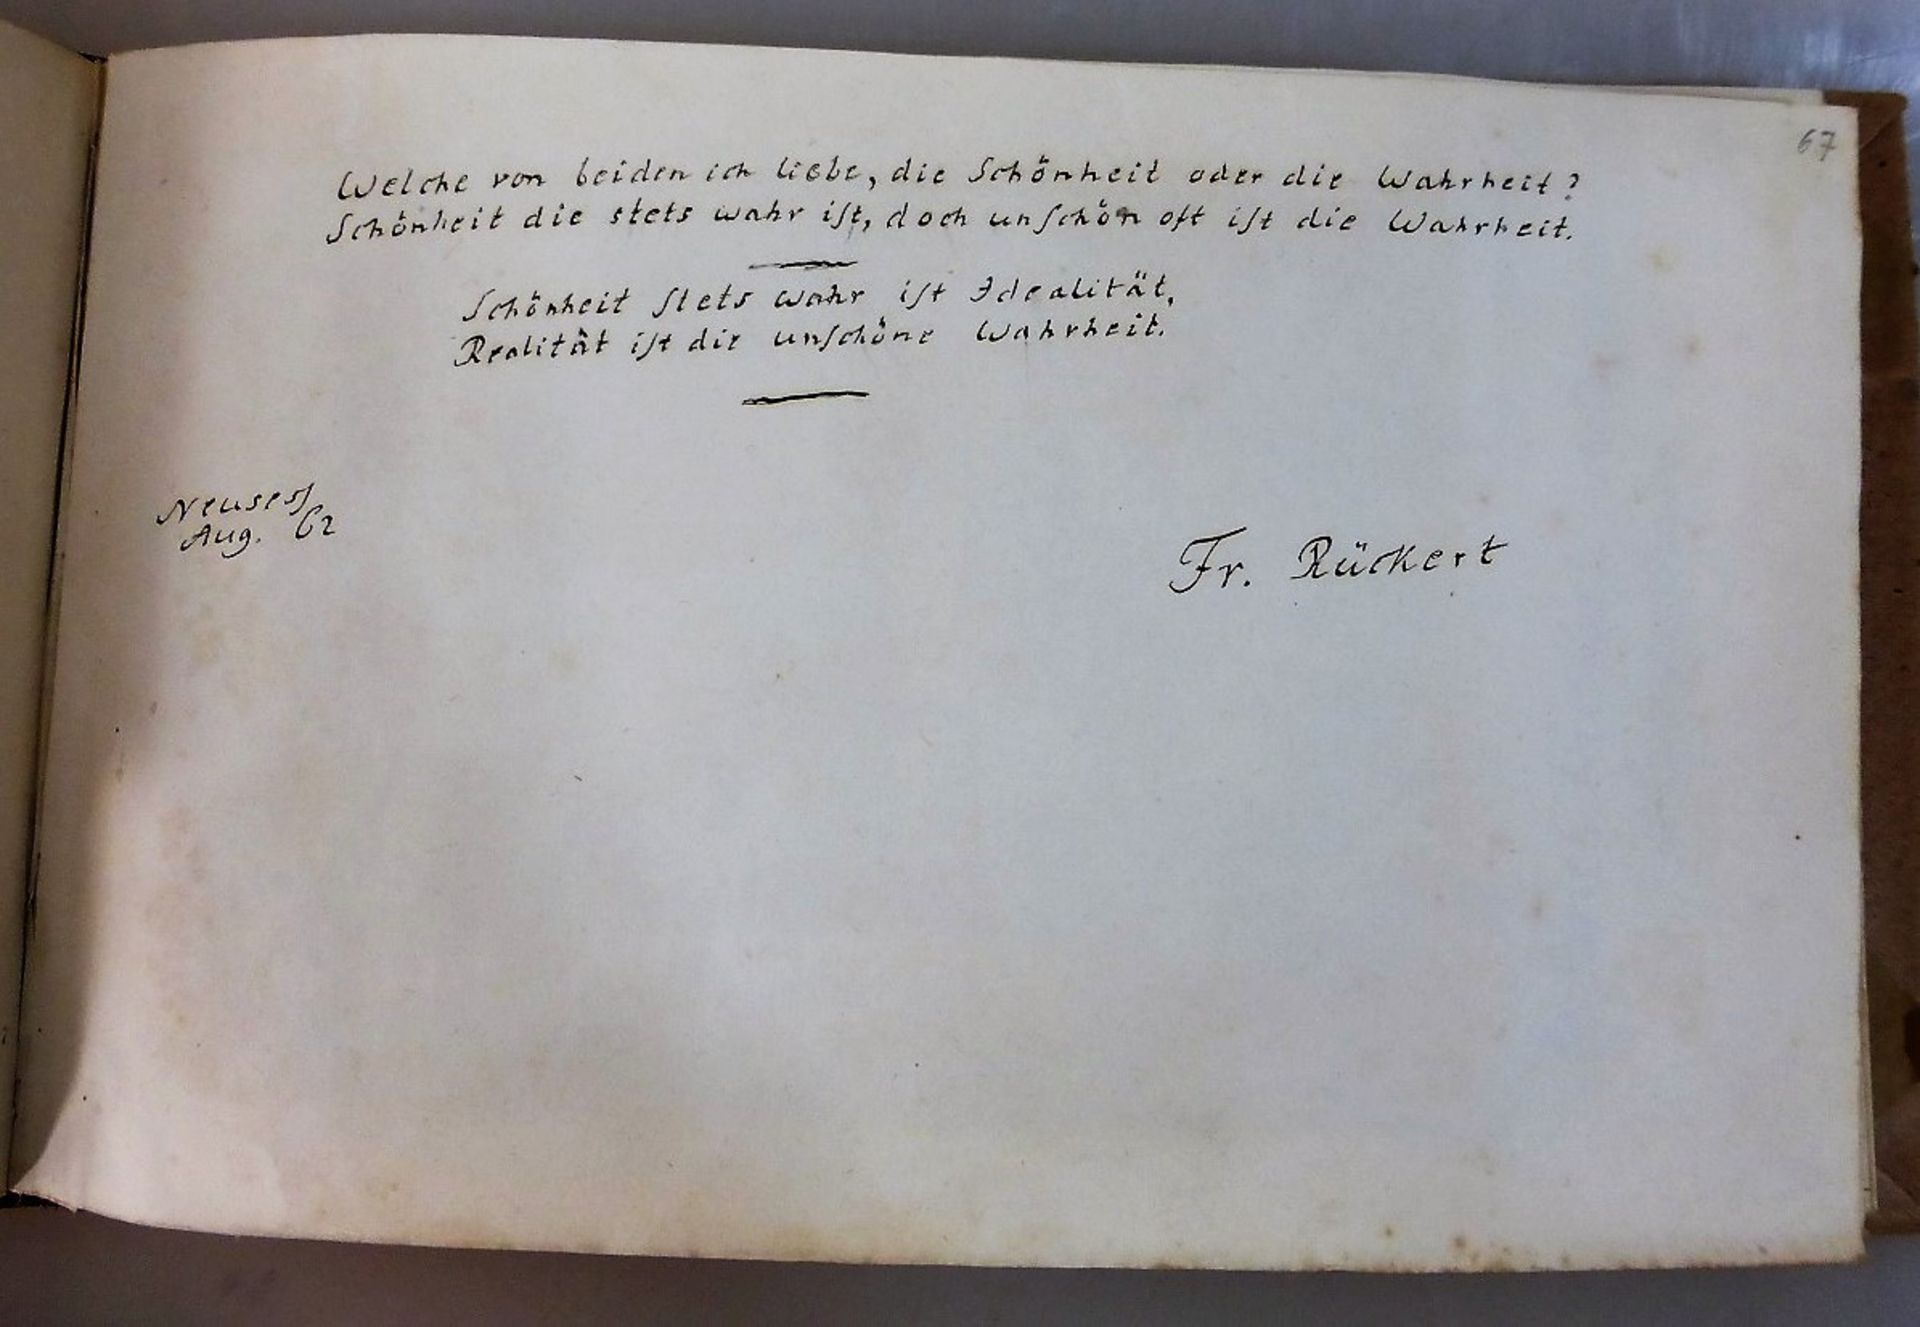 67
Welche von beiden ich liebe, die Schönheit oder die Wahrheit?
Schönheit die stets wahr ist, doch unschön oft ist die Wahrheit.
Schönheit stets wahr ist Idealität,
Realität ist die unschöne Wahrheit.
Neuses/
Aug. 62
Fr. Rückert